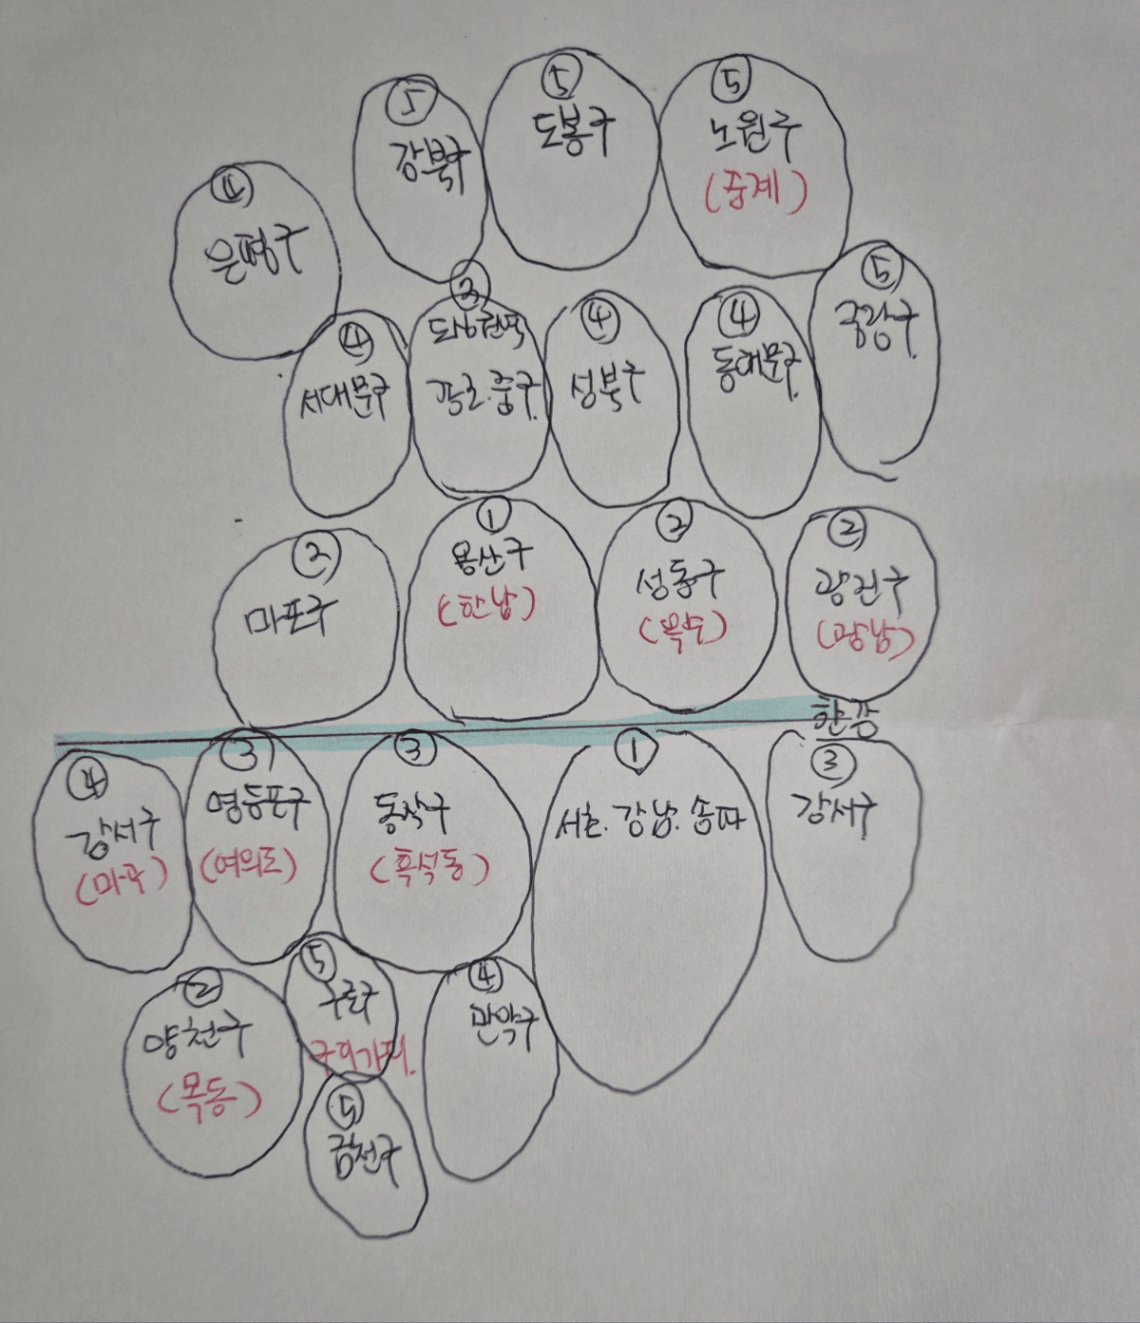 ⑤
강북구
⑤
도봉구
⑤
노원구
(중계)
④
은평구
④
서대문구
③
도심권역
종로.중구.
④
성북구
④
동대문구.
⑤
중랑구.
②
마포구
①
용산구
(한남)
②
성동구
(옥수)
②
광진구
(광남)
한강
④
강서구
(마곡)
③
영등포구
(여의도)
③
동작구
(흑석동)
①
서초.강남.송파
③
강서구
②
양천구
(목동)
⑤
구로구
④
관악구
⑤
금천구